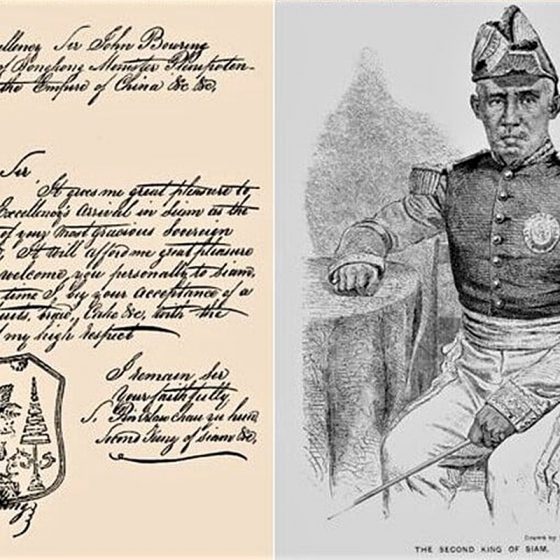 cellency Sir John Bowring
of Hongkong Minister Plenipoten-
the Empire of China &c &c,
Sir
It gives me great pleasure to
Excellency's arrival in Siam as the
of your most gracious Sovereign
It will afford me great pleasure
welcome you personally to Siam,
time I beg your acceptance of a
Cake &c, with the
my high respect
I remain Sir
Your faithfully
S.
Second King of Siam &c,
Drawn by
THE SECOND KING OF SIAM